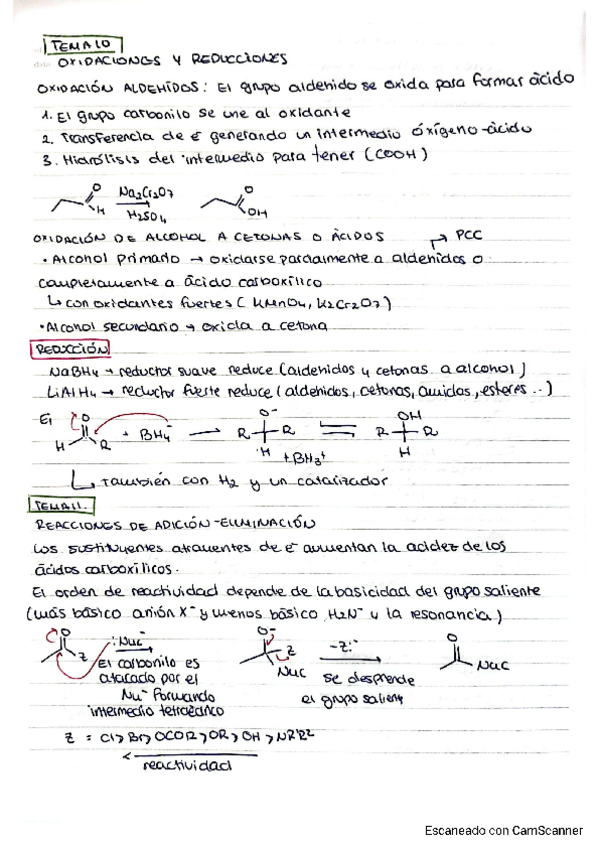 TEMA 10
OXIDACIONES Y REDUCCIONES
OXIDACIÓN ALDEHÍDOS: El grupo aldehido se oxida para formar ácido
1. El grupo carbonilo se une al oxidante
2. Transferencia de é generando un intermedio óxígeno-ácido
3. Hidrólisis del intermedio para tener (COOH)
O Na2Cr2O7 O
H H2SO4 OH
OXIDACIÓN DE ALCOHOL A CETONAS O ÁCIDOS → PCC
• Alcohol primario → oxidarse parcialmente a aldehidos o
completamente a ácido carboxílico
↳ con oxidantes fuertes (KMnO4, K2Cr2O7)
• Alcohol secundario → oxida a cetona
REDUCCIÓN
NaBH4 → reductor suave reduce (aldehidos y cetonas a alcohol)
LiAlH4 → reductor fuerte reduce (aldehidos, cetonas, amidas, esteres..)
Ej O O- OH
H R + BH4- R R R R
H H
+BH3+
↳ También con H2 y un catalizador
TEMA 11.
REACCIONES DE ADICIÓN-ELIMINACIÓN
Los sustituyentes atrayentes de é aumentan la acidez de los
ácidos carboxílicos.
El orden de reactividad depende de la basicidad del grupo saliente
(más básico anión X- y menos básico H2N- y la resonancia)
O :Nuc- O- -Z:- O
Z El carbonilo es Z Nuc
atacado por el Nuc se desprende
Nu- formando el grupo salient
intermedio tetraédrico
Z = Cl > Br > OCOR > OR > OH > NR'R2
reactividad
Escaneado con CamScanner